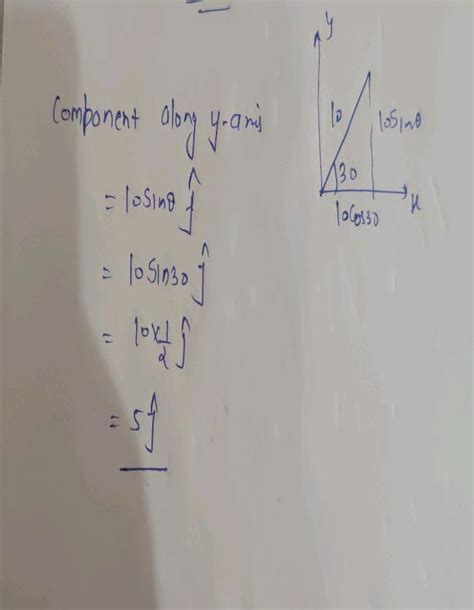 Component along y-axis
= 10sinθ ĵ
= 10sin30 ĵ
= 10x1/2 ĵ
= 5ĵ
y
10
10sinθ
30
x
10cos30